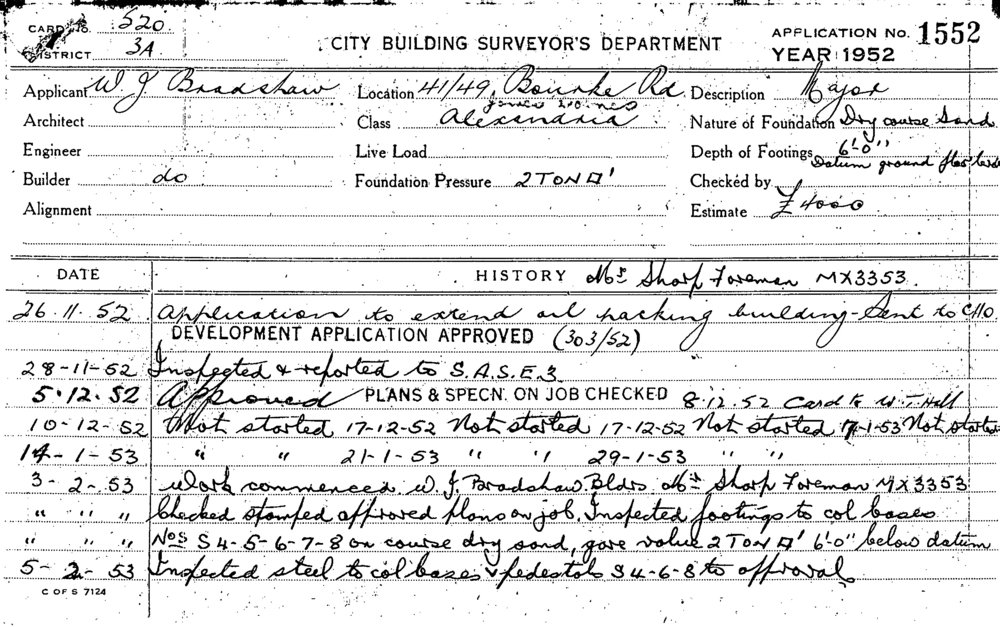 CARD No. 520
DISTRICT 3A
CITY BUILDING SURVEYOR'S DEPARTMENT
APPLICATION No. 1552
YEAR 1952
Applicant W J Bradshaw Location 41/49, Bourke Rd Description Major
Architect Class Alexandria Nature of Foundation Dry course Sand
Engineer Live Load Depth of Footings 6'0"
Datum ground floor
Builder do Foundation Pressure 2 TON □' Checked by
Alignment Estimate £4000
DATE HISTORY Mr Sharp Foreman MX3353
26.11.52 Application to extend oil packing building - Sent to CHO.
DEVELOPMENT APPLICATION APPROVED (303/52)
28-11-52 Inspected & reported to S.A.S.E.3
5.12.52 Approved PLANS & SPECN. ON JOB CHECKED 8.12.52 Card to W. T. Hall
10-12-52 Not started 17-12-52 Not started 17-12-52 Not started 7-1-53 Not started
14-1-53 " " 21-1-53 " " 29-1-53 " "
3-2-53 Work commenced. W. J. Bradshaw Bldrs Mr Sharp Foreman MX3353
" " " Checked stamped approved plans on job. Inspected footings to col bases
" " " Nos S4-5-6-7-8 on course dry sand, gave value 2 TON □' 6'0" below datum
5-2-53 Inspected steel to col bases & pedestals S4-6-8 to approval
C OF S 7124